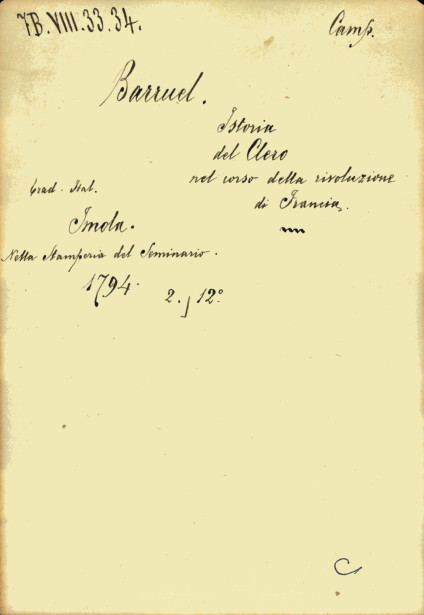 7B.VIII.33.34.
Camp.
Barruel.
Istoria
del Clero
nel corso della rivoluzione
di Francia.
Trad. Ital.
Imola.
Nella Stamperia del Seminario.
1794.
2. 12º
C